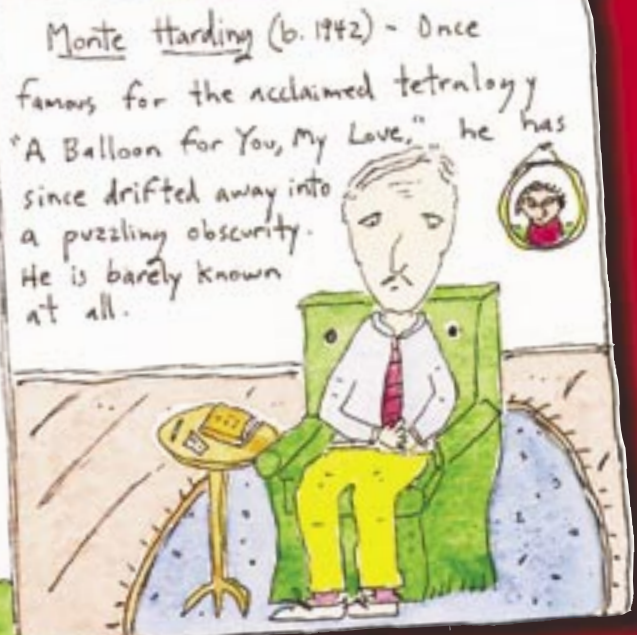 Monte Harding (b. 1942) - Once
famous for the acclaimed tetralogy
"A Balloon for You, My Love," he has
since drifted away into
a puzzling obscurity.
He is barely known
at all.